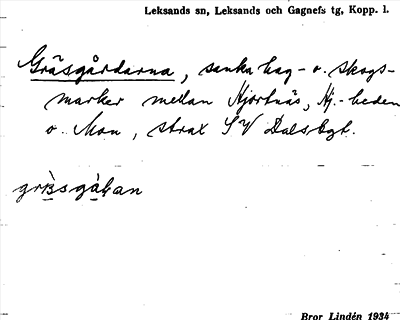 Leksands sn, Leksands och Gagnefs tg, Kopp. l.
Gräsgårdarna, sanka hag- o. skogs-
marker mellan Hjortnäs, Hj.-heden
o. Mon, strax SV Dalsbyt.
Bror Lindén 1934